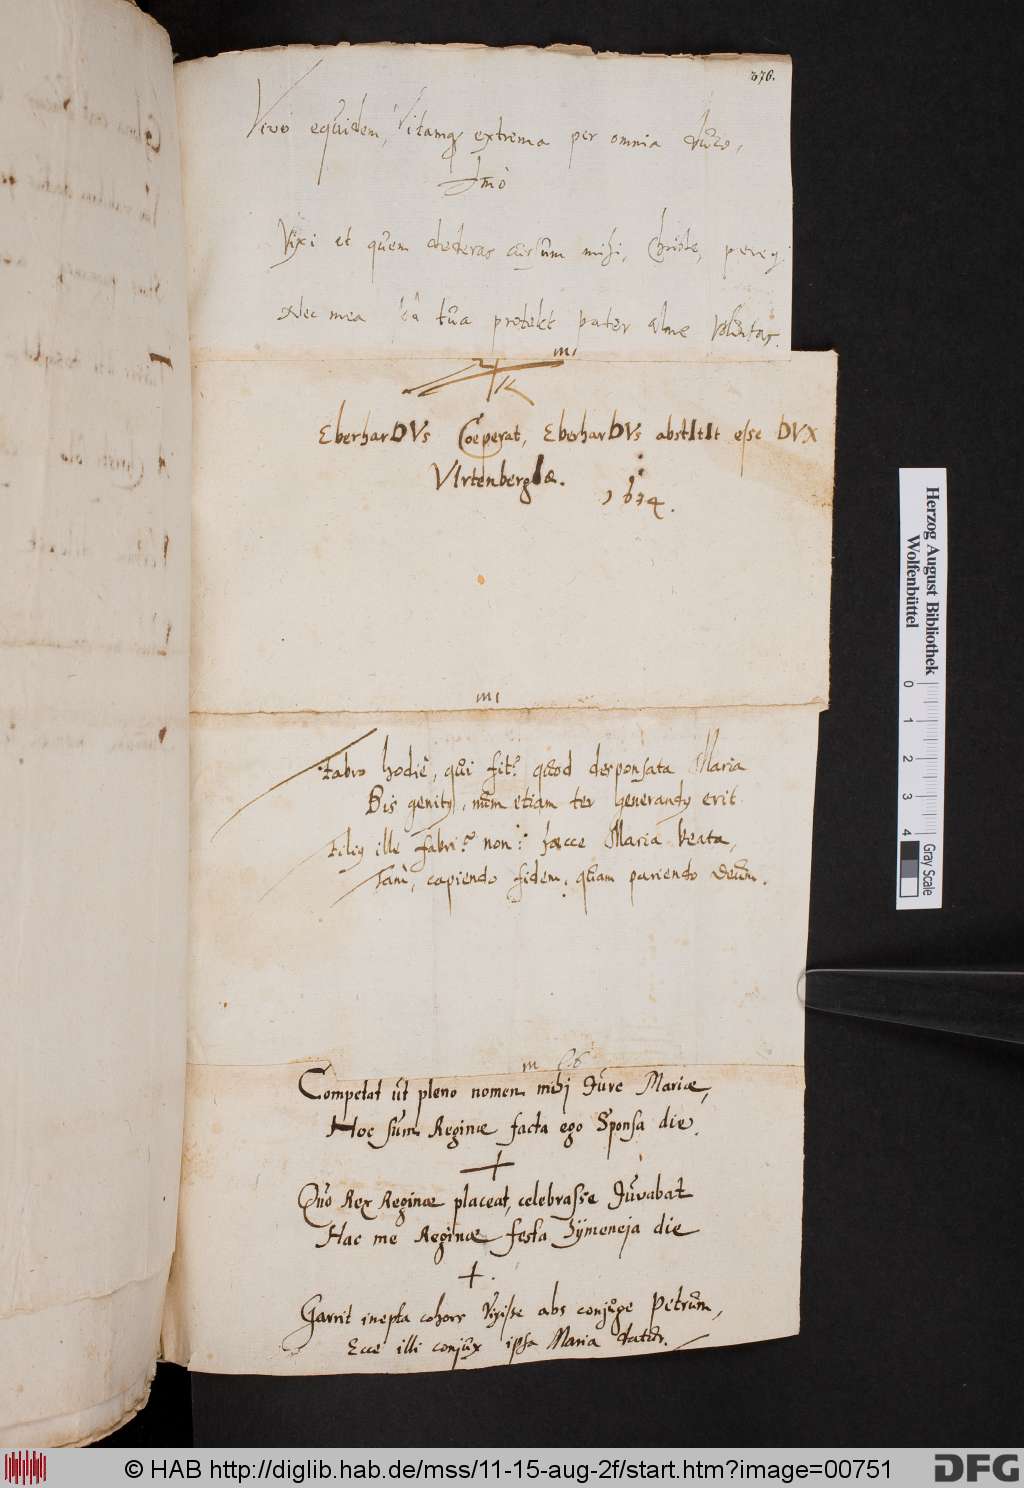 376.
Vivo equidem, Vitamq extrema per omnia duco,
Imò
Vixi et quem dederas cursum mihi, Christe, peregi
Nec mea sed tua protekt pater alme Voluntas.
EberharDVs Coeperat, EberharDVs abstItIt esse DVX
VIrtenbergIæ.
1634.
Fabro hodiè, qui fit? quod desponsata Maria
Bis genitg, num etiam ter generandg erit
Filig ille fabri? non: Ecce Maria beata,
Tam, capiendo fidem, quam pariendo Deum.
Competat ut pleno nomen mihj Jure Mariæ,
Hoc sum Reginæ facta ego Sponsa die.
Quo Rex Reginæ placeat, celebrasse Juvabat
Hac me Reginæ festa Hymeneja die
Garrit inepta cohors Vixisse abs conjuge Petrum,
Ecce illi conjux ipsa Maria datur.
Herzog August Bibliothek
Wolfenbüttel
0 1 2 3 4
Gray Scale
© HAB http://diglib.hab.de/mss/11-15-aug-2f/start.htm?image=00751
DFG